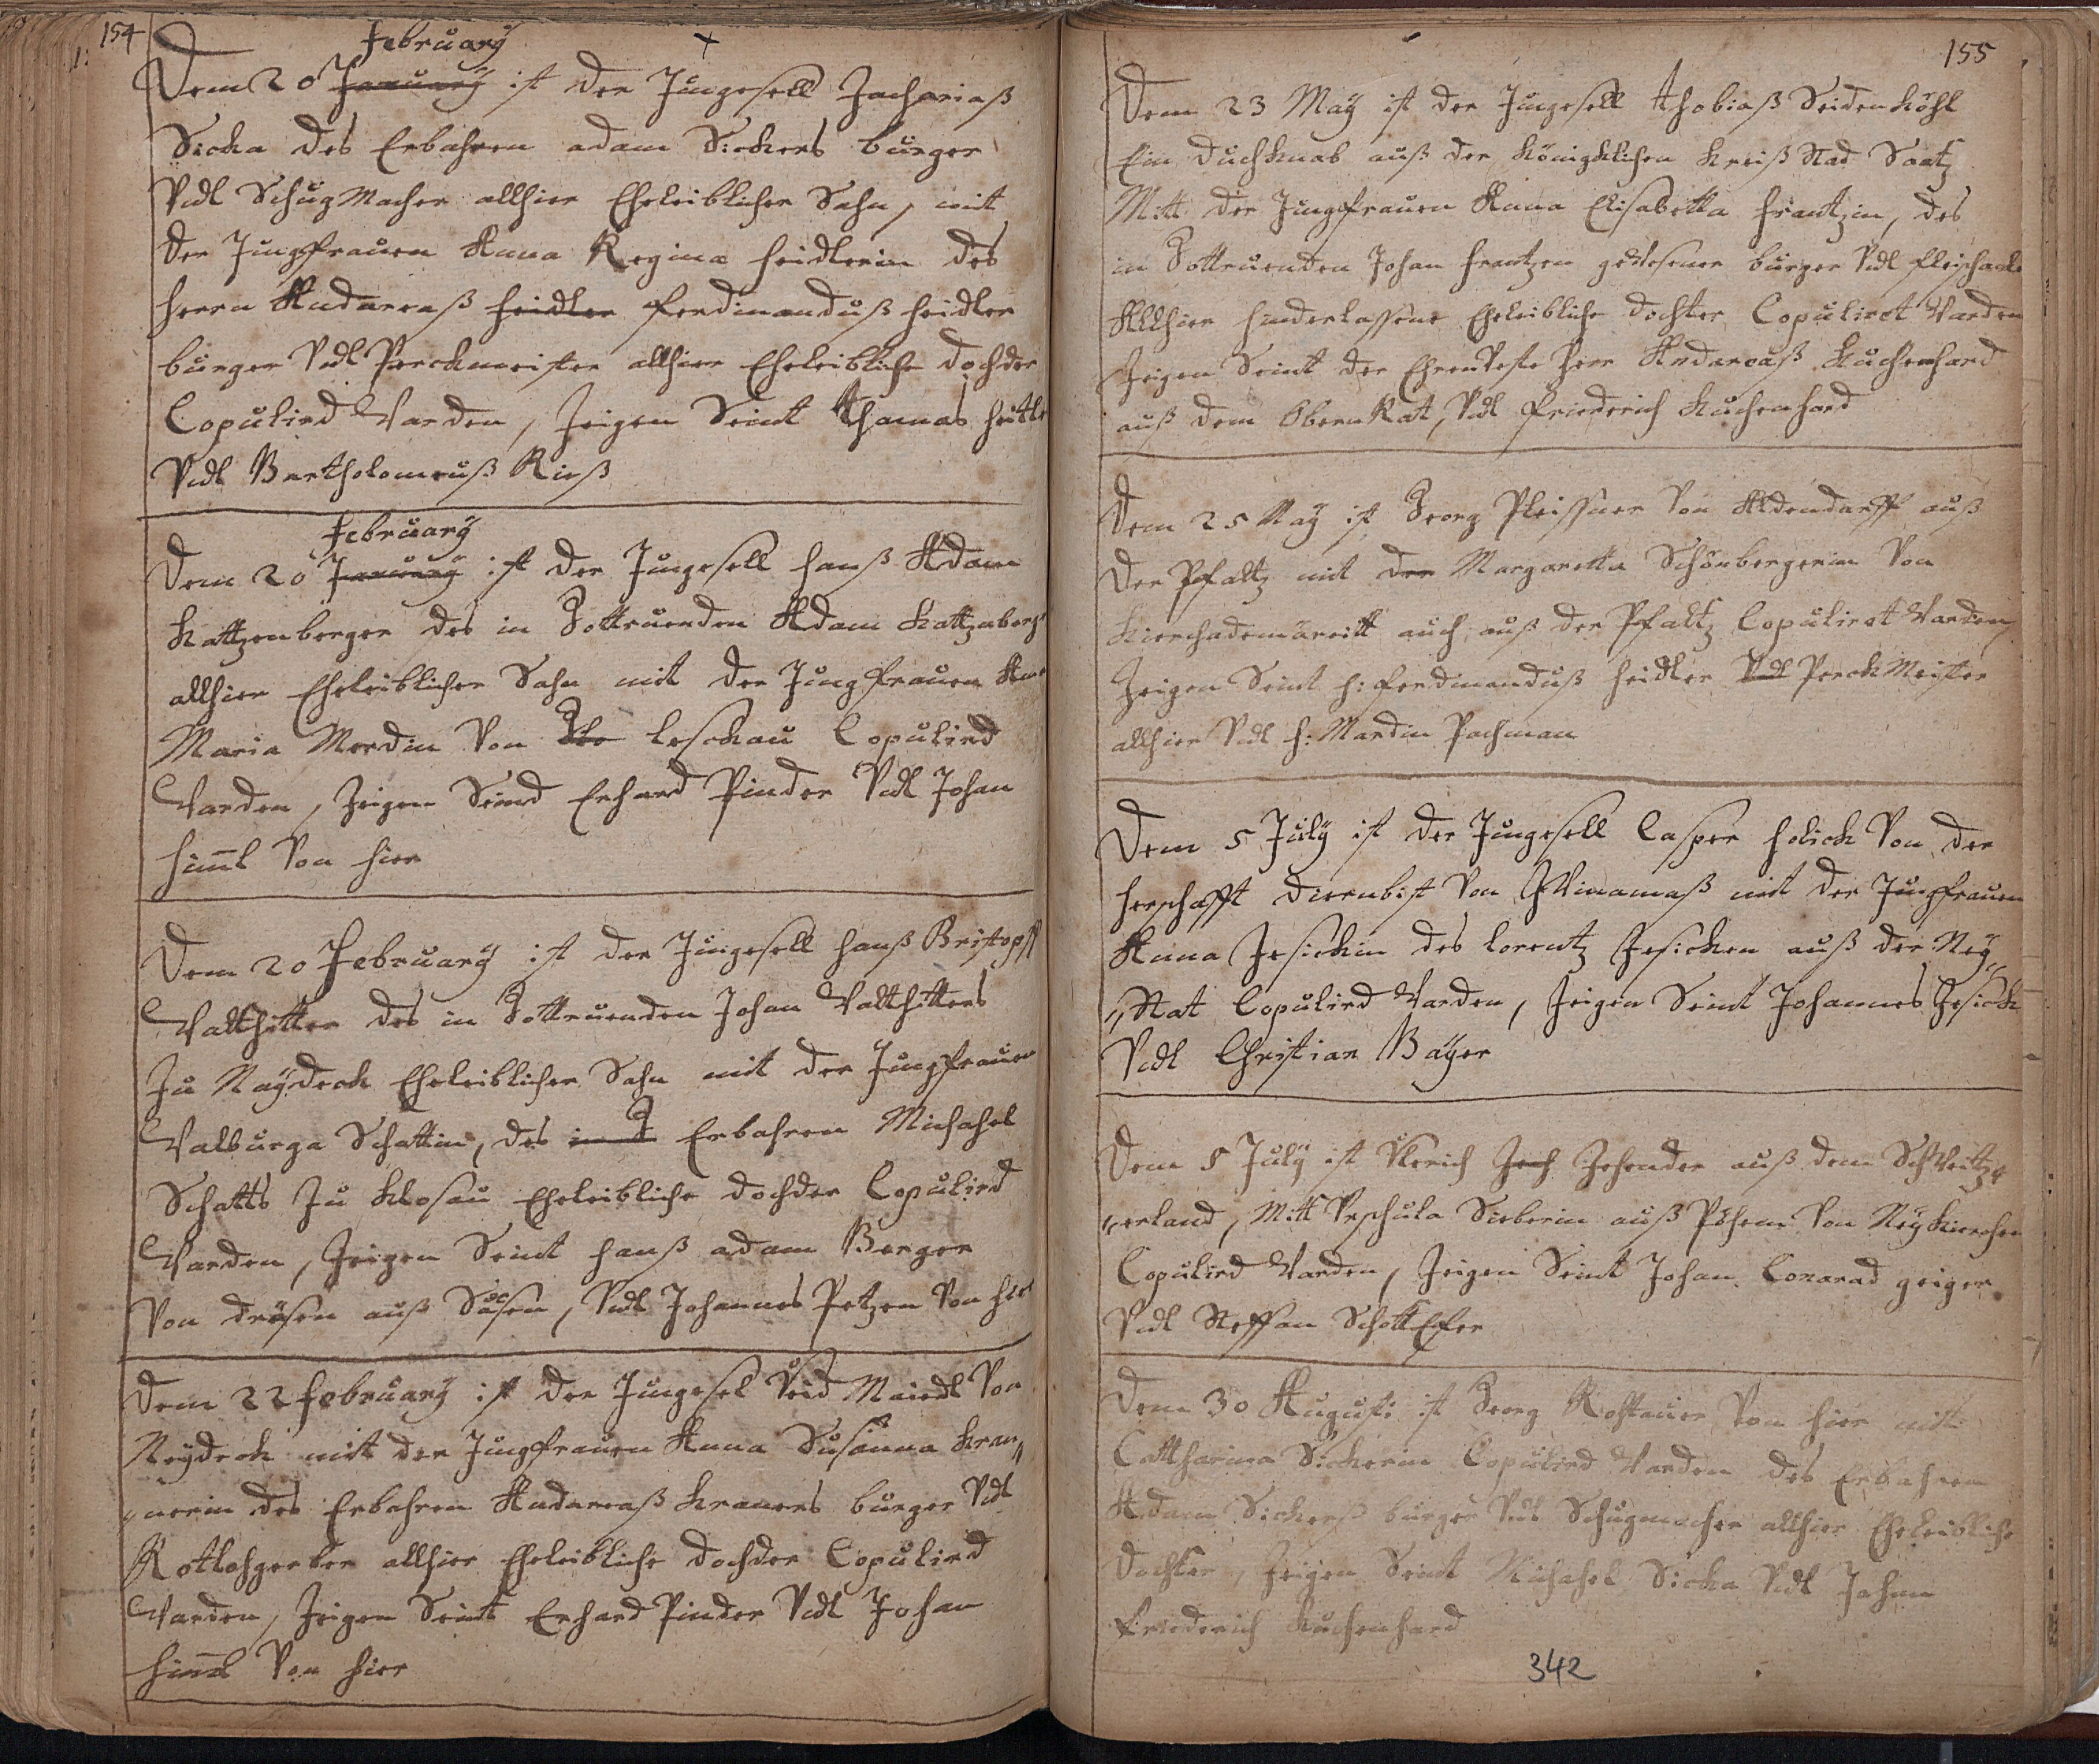 154
February
Dem 20 January ist der Jüngesell Zachariaß
Sicka des Erbahren adam Sickers bürger
Vndt Schug Macher allhier Eheleiblicher Sohn, mit
der Jungfrauen Anna Regina heidlerin des
herrn Andareaß heidler ferdimanduß heidler
bürger Vndt Perckmeister allhier Eheleibliche dochder
Copulird Varden, Zeigen Seint Thamas heitler
Vndt Bartholomeuß Rieß
February
Dem 20 January ist der Jüngesell hanß Adam
Kattzenberger des in Gottruenden Adam Kattzenberg
allhier Eheleiblicher Sohn mit der Jungfrauen
Maria Merdin Von Leskau Copulird
Varden, Zeigen Seind Erhard Pinder Vndt Johan
himl Von hier
Dem 20 February ist der Jüngesell hanß Cristopff
Valthitter des in Gottruenden Johan Valthitters
Zu Naydeck Eheleiblicher Sohn mit der Jungfrauen
Valburga Schattin, des in G Erbahren Michahel
Schatts Zu Klosau Eheleibliche dochder Copulird
Varden, Zeigen Seint hanß adam Berger
Von drösen auß Sasen, Vndt Johannes Petzen Von hier
Dem 22 february ist der Jüngesel Veid Maiedl Von
Neydeck mit der Jungfrauen Anna Susanna Kran„
„nerin des Erbahren Andareaß Kraners bürger Vndt
Rottlohgerber allhier Eheleibliche dochder Copulird
Varden, Zeigen Seint Erhard Pinder Vndt Johan
himl Von hier
155
Dem 23 May ist der Jüngesell Thobiaß Seidenköhl
Ein duchknab auß der Königklichen Kreiß Stad Saatz
Mitt der Jungfrauen Anna Elisabetta frantzin, des
in Gottruenden Johan frantzen gewesener bürger Vndt fleischack
Allhier hinderlassene Eheleibliche dochter Copuliret Varden
Zeigen Seint der Ehrenveste herr Andareaß Kuchenhard
auß dem Obern Rat, Vndt friederich Kuchenhard
Dem 25 May ist Georg Pleissner Von Aldendarff auß
der Pfaltz mit der Margaretta Schönbergerin Von
Kierchademäreitt auch auß der Pfaltz Copuliret Varden,
Zeigen Seint h: ferdimanduß heidler Vndt Perck Meister
allhier Vndt h: Mardin Pachman
Dem 5 July ist der Jüngesell Casper holick Von der
herschafft Dicenbist Von mit der Jungfrauen
Anna Jesickin des Lorentz Jesicken auß der Ney„
„Stat Copulird Varden, Zeigen Seint Johannes Jesick
Vndt Christian Bäyer
Dem 5 July ist Vlerich Zeh Zehender auß dem Schweitz„
„erland, Mitt Vrschula Sieberin auß Pöhem Von Neykierchen
Copulird Varden, Zeigen Seint Johan Conarad geiger
Vndt Steffan
Dem 30 Augusti ist Georg Rostauer Von hier mit
Cattharina Sickerin Copulird Varden des Erbahren
Adam Sickers bürger Vndt Schugmacher allhier Eheleibliche
dochter, Zeigen Seint Michahel Sicka Vndt Johan
friederich Kuchenhard
342